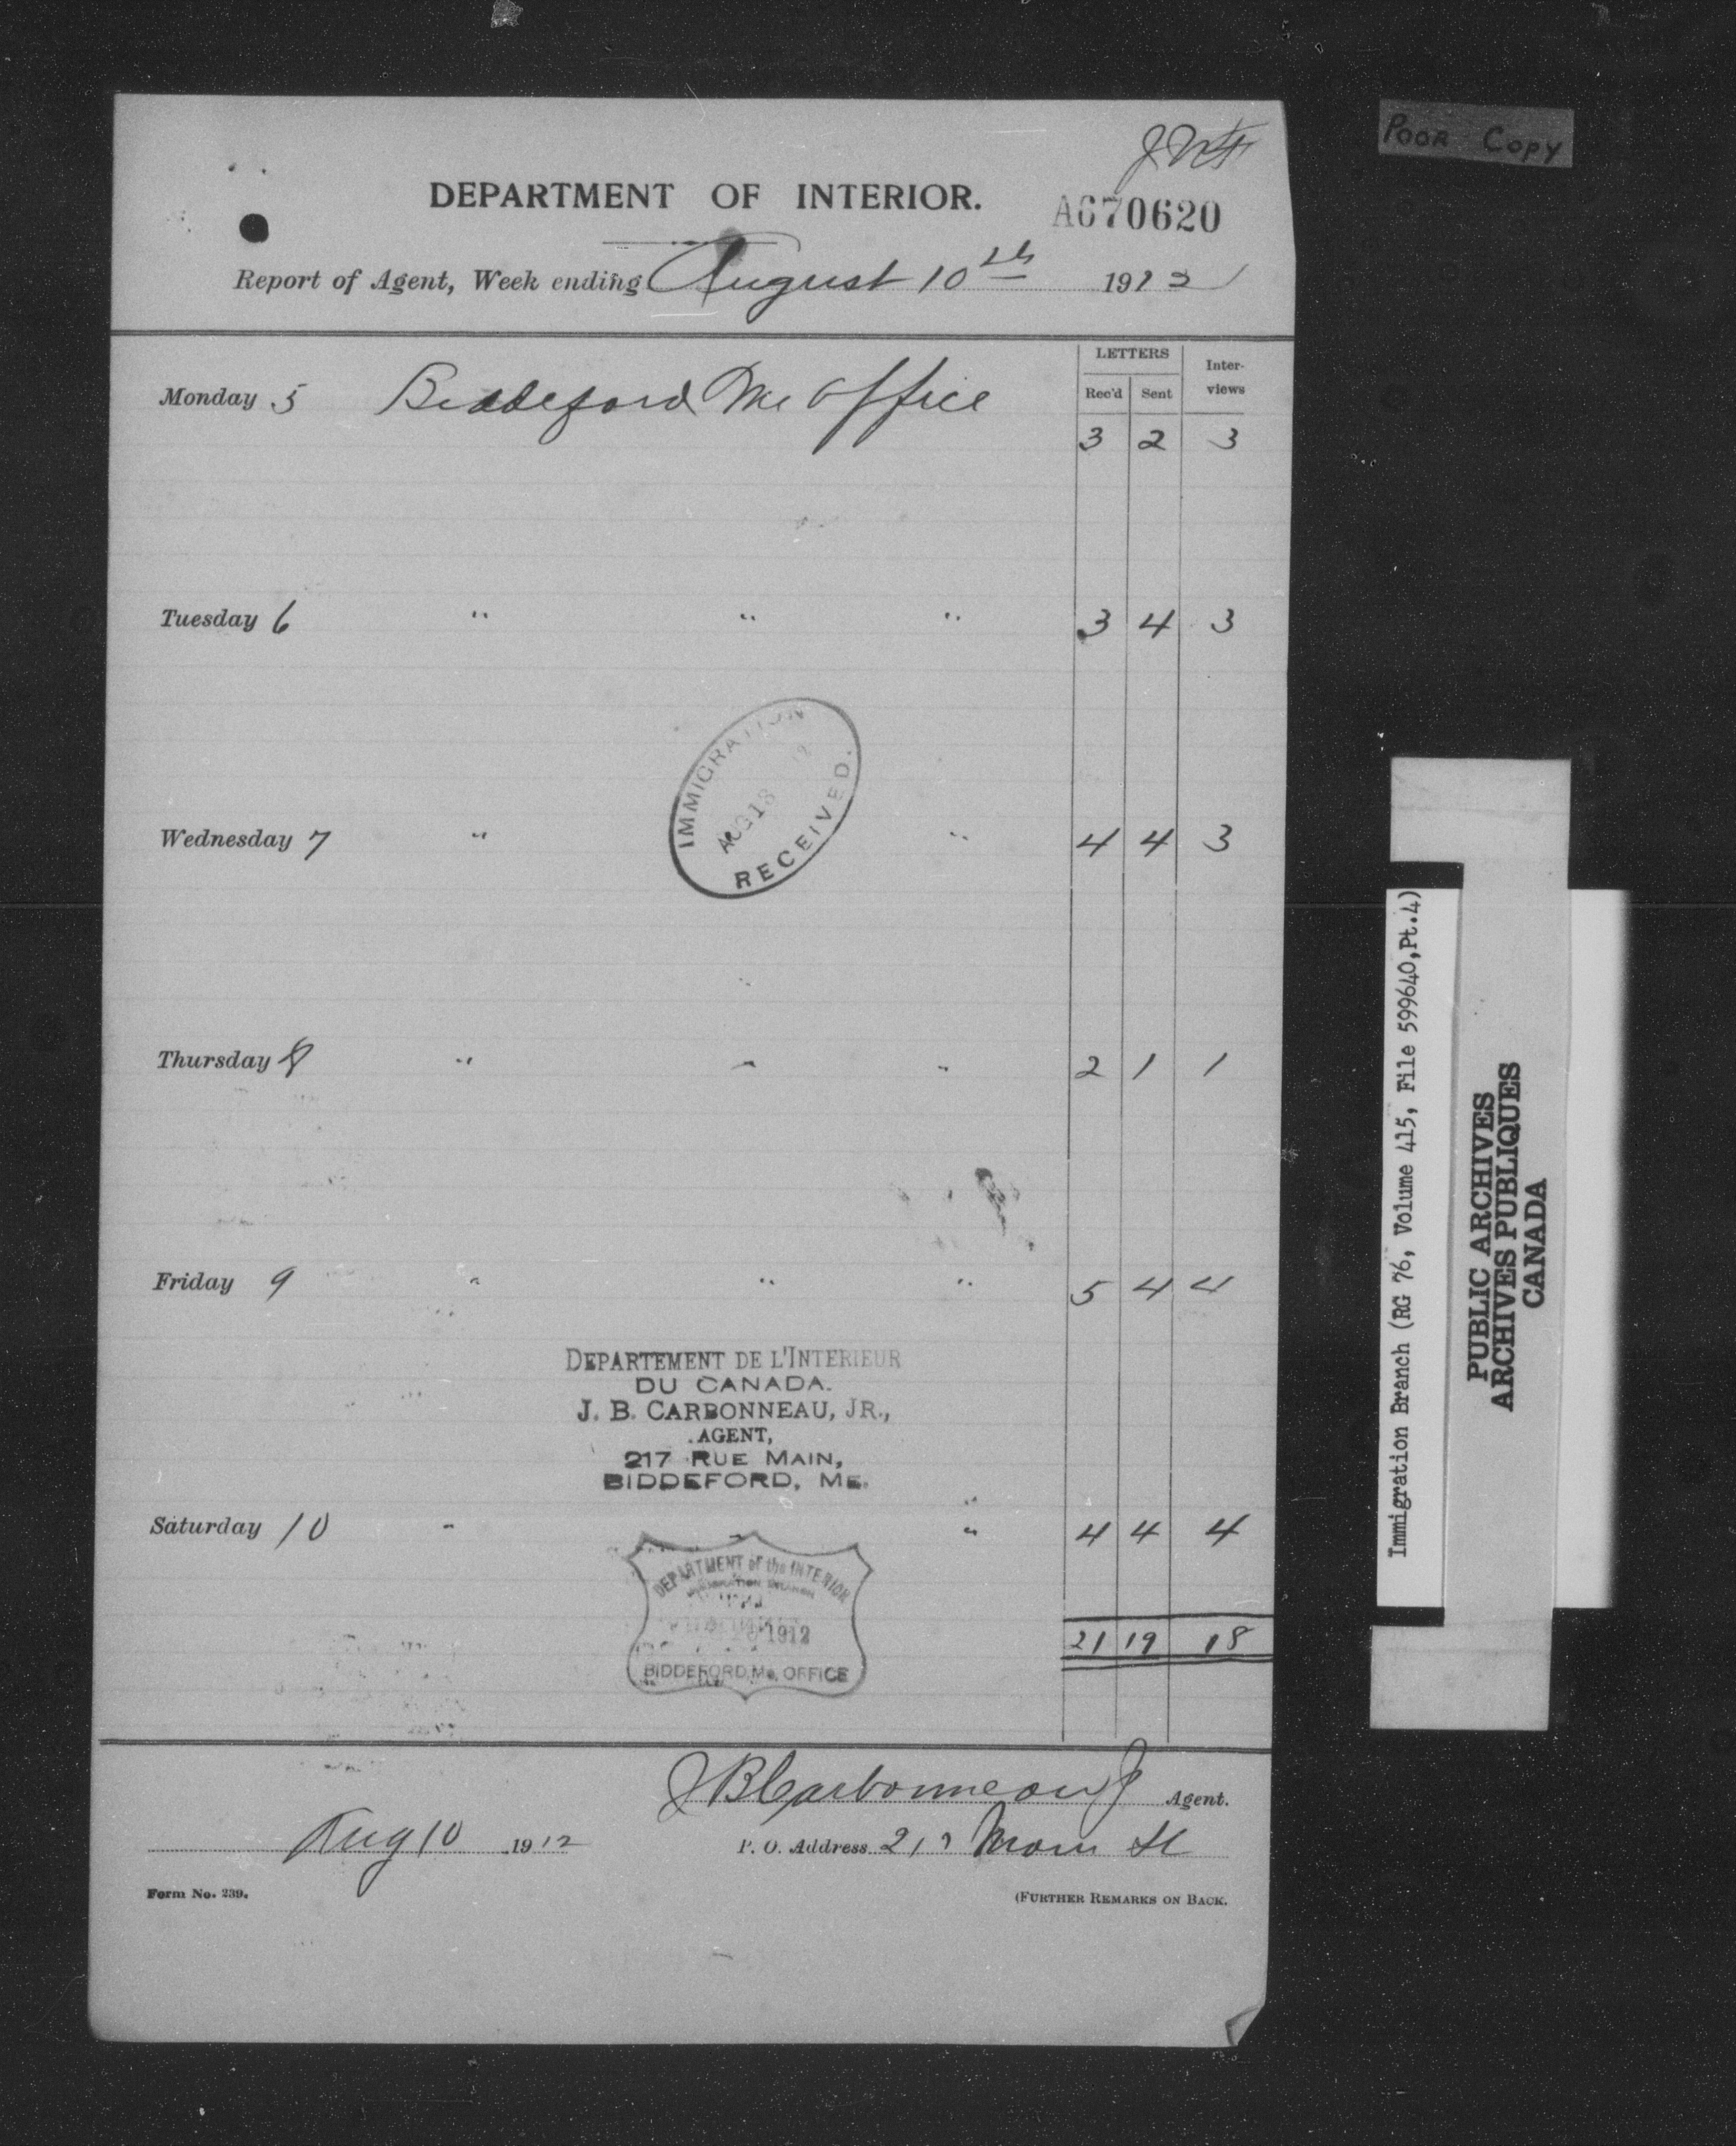 POOR COPY
DEPARTMENT OF INTERIOR.
A670620
Report of Agent, Week ending August 10th 1912
LETTERS Inter-views
Rec'd Sent
Monday 5 Biddeford Me Office
3 2 3
Tuesday 6 " " " 3 4 3
IMMIGRATION
AUG 13 12
RECEIVED.
Wednesday 7 " " 4 4 3
Thursday 8 " " " 2 1 1
Friday 9 " " " 5 4 4
DEPARTEMENT DE L'INTERIEUR
DU CANADA.
J. B. CARBONNEAU, JR.,
AGENT,
217 RUE MAIN,
BIDDEFORD, ME.
Saturday 10 " " " 4 4 4
DEPARTMENT of the INTERIOR
1912
BIDDEFORD, Me. OFFICE
21 19 18
J B Carbonneau J Agent.
Aug 10 1912 P. O. Address 217 Main St
Form No. 239. (FURTHER REMARKS ON BACK.
Immigration Branch (RG 76, Volume 415, File 599640,Pt.4)
PUBLIC ARCHIVES
ARCHIVES PUBLIQUES
CANADA